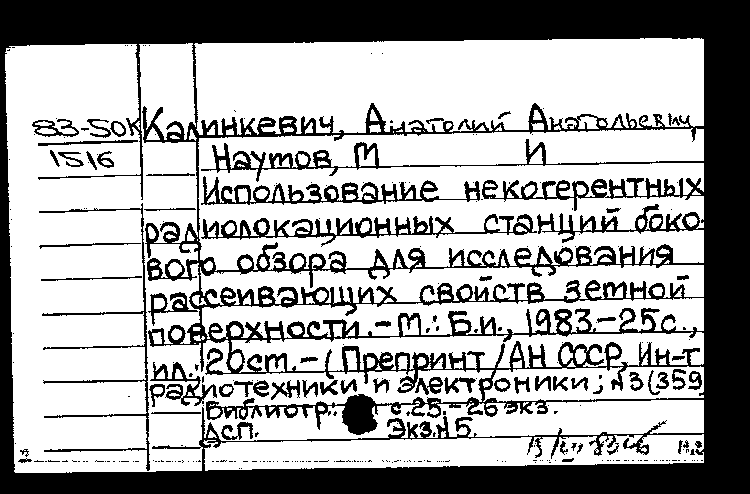 83-50К Калинкевич, Анатолий Анатольевич,
1516 Наутов, М И
Использование некогерентных
радиолокационных станций боко-
вого обзора для исследования
рассеивающих свойств земной
поверхности.-М.: Б.и., 1983.-25с.,
ил.; 20см.-(Препринт/АН СССР, Ин-т
радиотехники и электроники; №3(359)
Библиогр.: с.25.-26экз.
Дсп. Экз.№5.